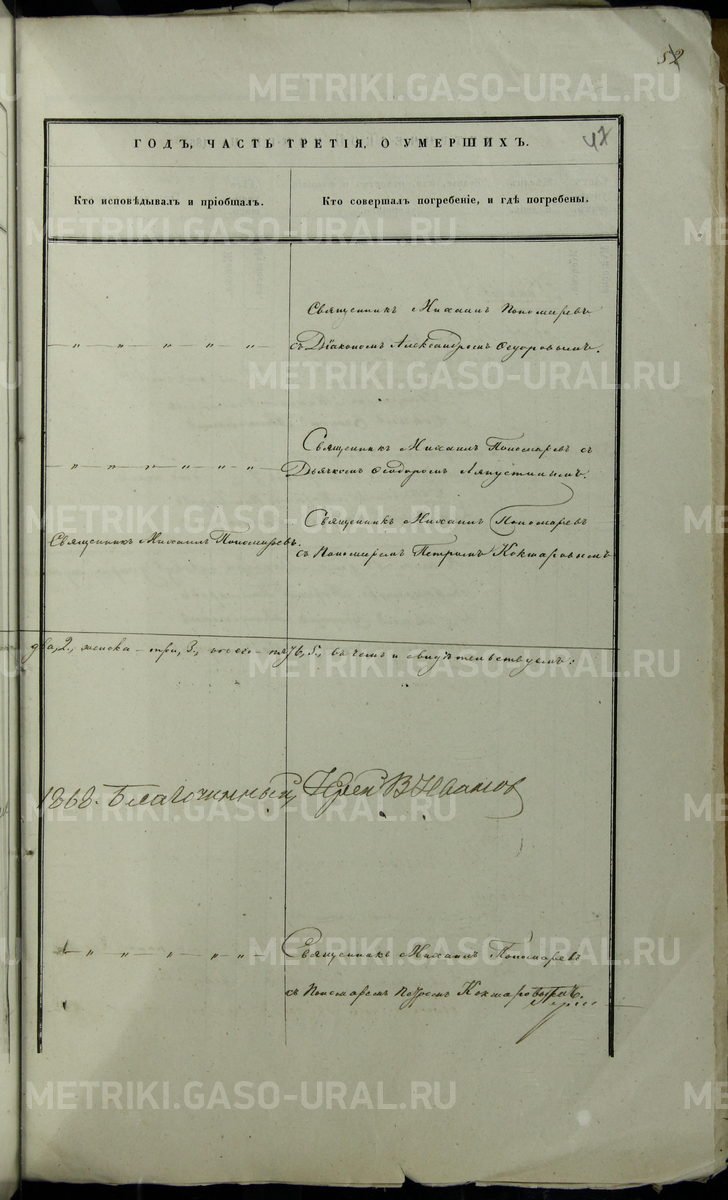 52
47
ГОДЪ, ЧАСТЬ ТРЕТІЯ, О УМЕРШИХЪ.
Кто исповѣдывалъ и пріобщалъ.
Кто совершалъ погребеніе, и гдѣ погребены.
Священникъ Михаилъ Пономаревъ
— „ — „ — „ — „ — „ — съ Діакономъ Александромъ Ѳедоровымъ.
Священникъ Михаилъ Пономаревъ съ
— „ — „ — „ — „ — „ — Дьячкомъ Ѳеодоромъ Ляпустинымъ.
Священникъ Михаилъ Пономаревъ
Священникъ Михаилъ Пономаревъ.
съ Пономаремъ Петромъ Кокшаровымъ
два, 2., женска – три, 3., всего – пять, 5., въ чемъ и свидѣтельствуемъ:
1868. Благочинный, Іерей В Иванов
— „ — „ — „ — „ — „ — Священникъ Михаилъ Пономаревъ
съ Пономаремъ Петромъ Кокшаровымъ.
METRIKI.GASO-URAL.RU